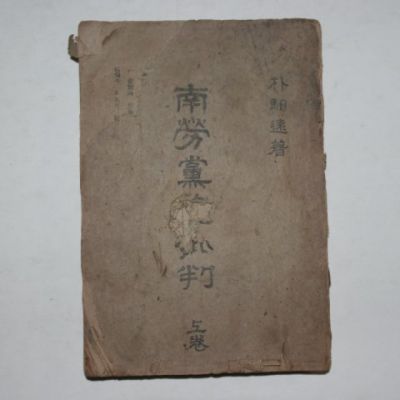 朴馹遠著
南勞黨總批判
上卷